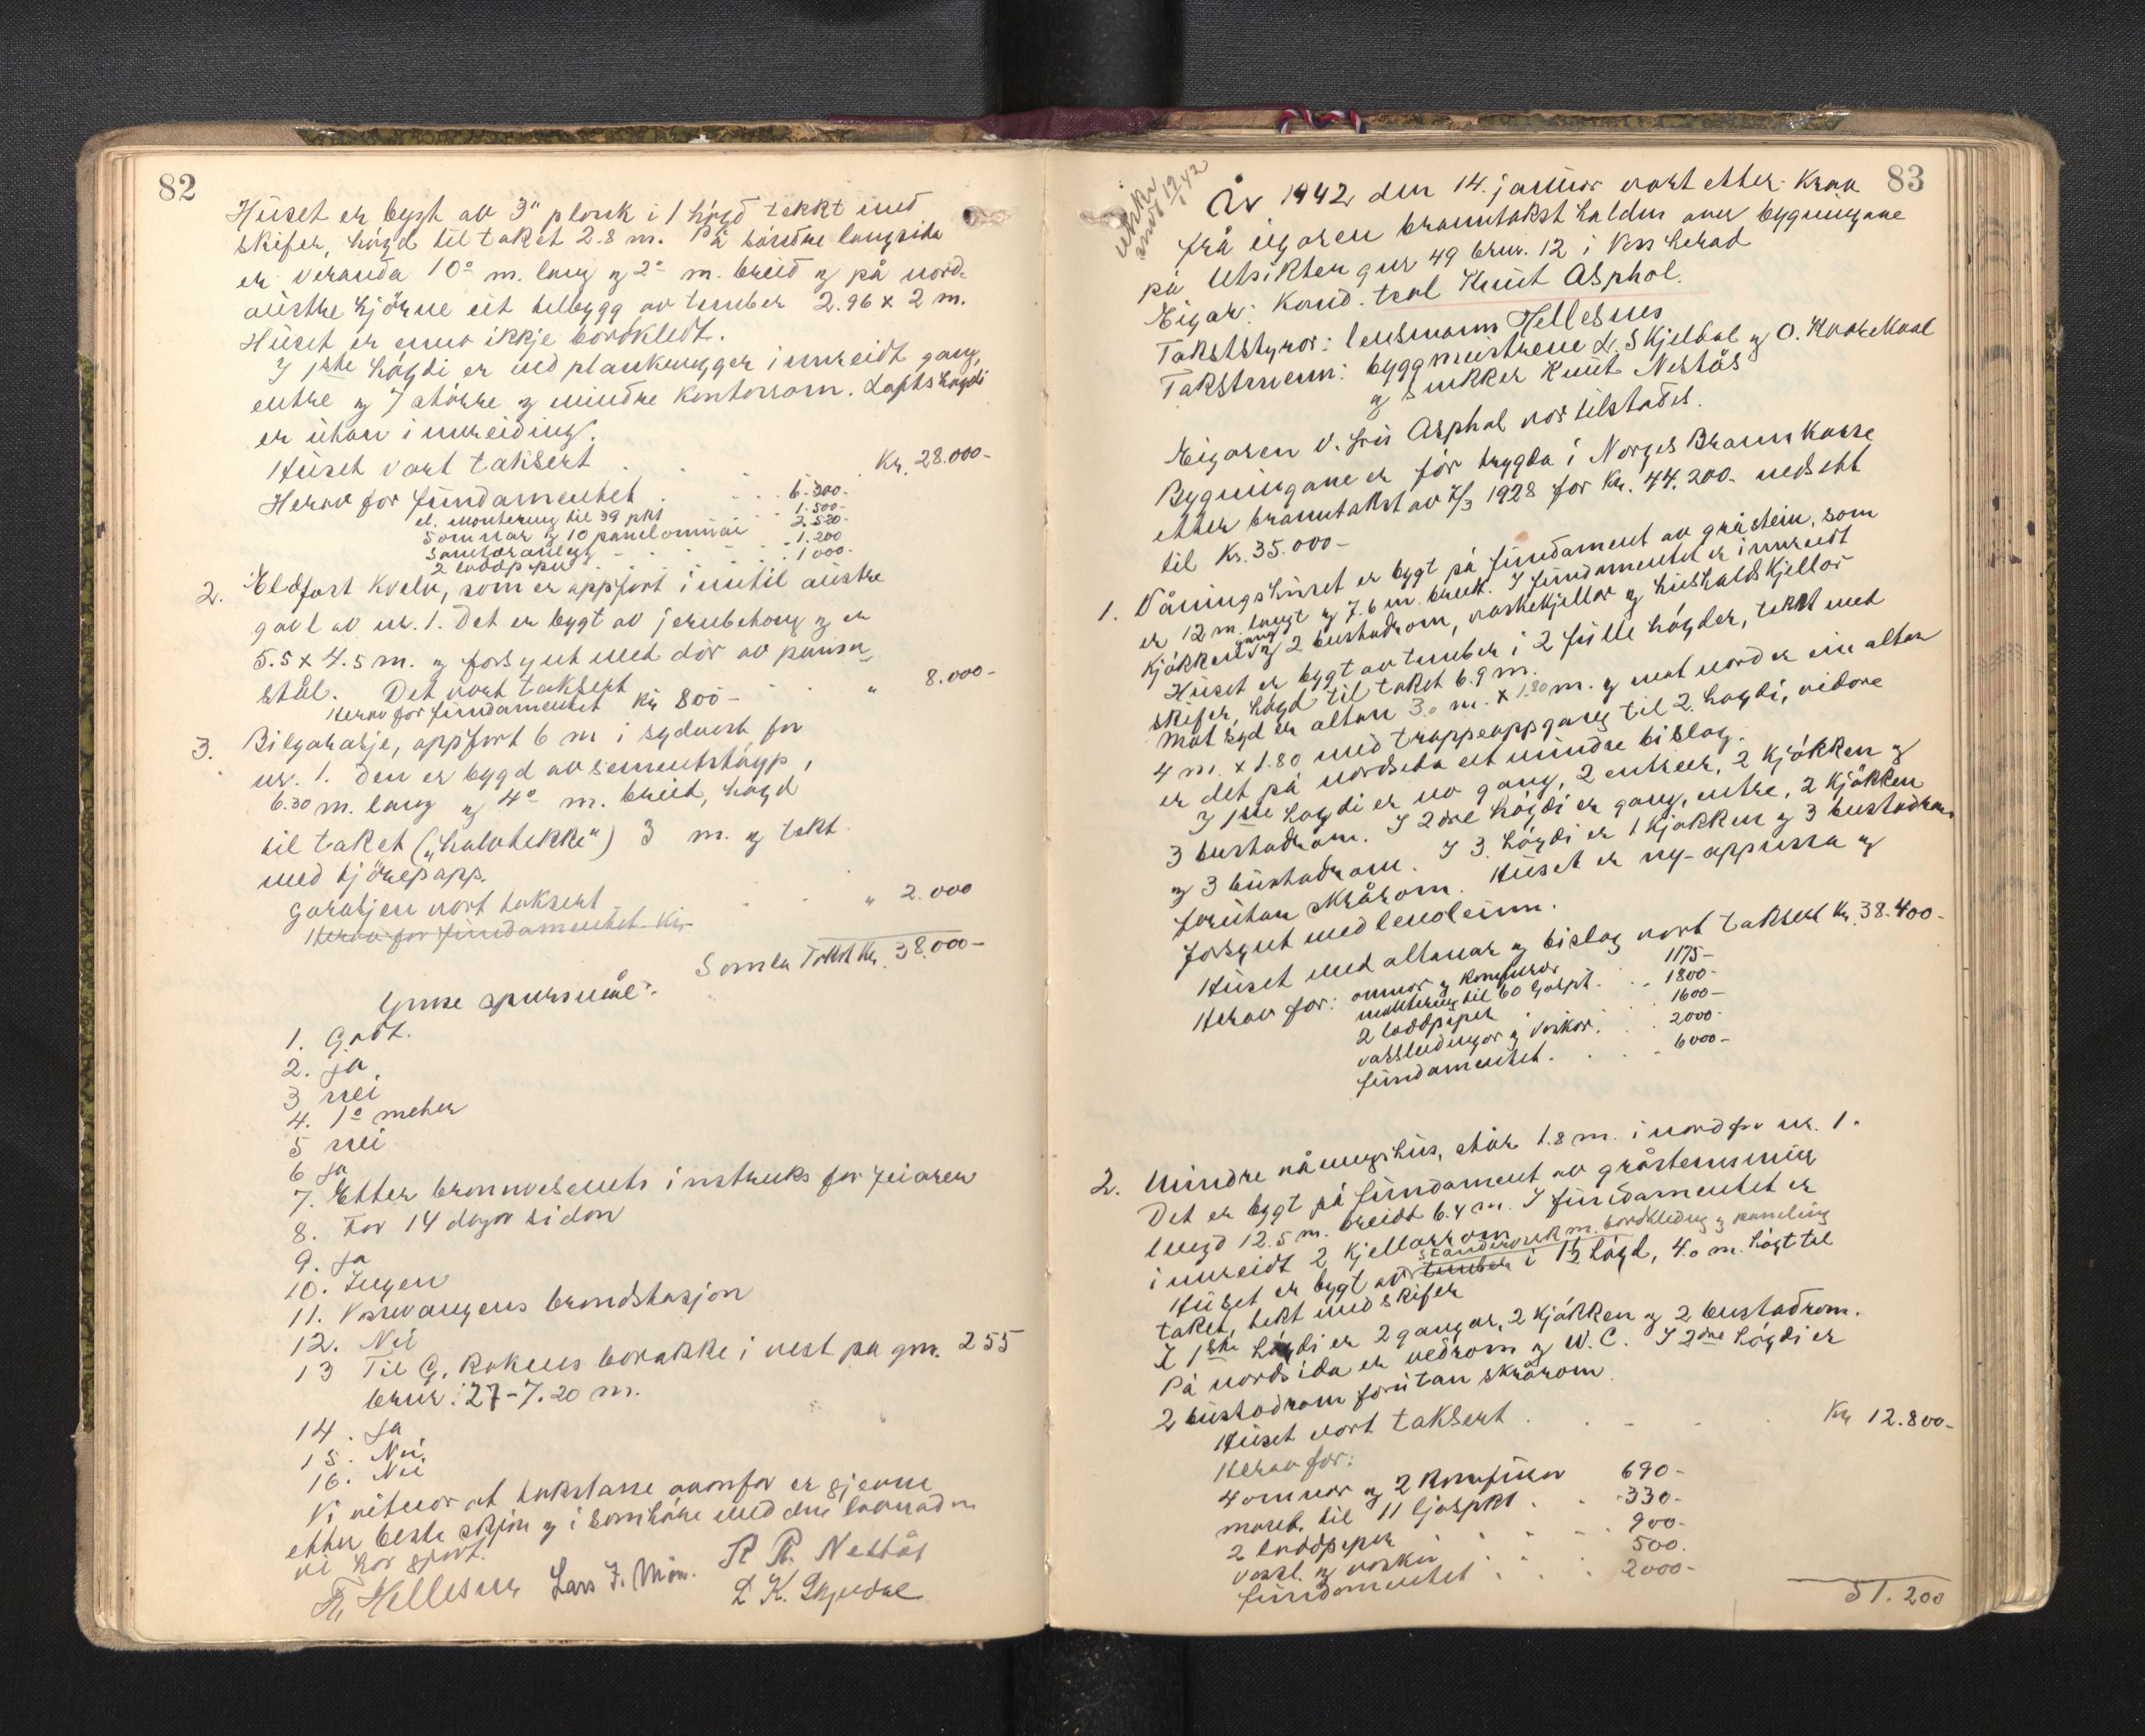 82
Huset er bygt av 3" plank i 1 høgd tekkt med
skifer, høgd til taket 2.8 m. På søndre langsida
er veranda 10º m. lang og 2º m. breid og på nord-
austre hjørne eit tilbygg av timber 2.96 x 2 m.
Huset er enno ikkje bordkledt.
I 1ste høgdi er med plankevegger innreidt gang,
entre og 7 større og mindre kontorrom. Loftshøgdi
er utan innreiding.
Huset vart taksert . . . . Kr. 28.000-
Herav for fundamentet . . . 6.300-
el. montering til 39 pkt . . 1.500-
og 10 panelomnar 2.520-
Sanitæranlegg . . . 1.200
2 loddpipur . . . 1000-
2. Eldfast kvelv, som er oppført inntil austre
gavl av nr. 1. Det er bygt av jernbetong og er
5.5 x 4.5 m. og forsynt med dør av pansar-
stål. Det vart taksert . . . " 8.000-
Herav for fundamentet kr 800-
3. Bilgarasje, oppført 6 m i sydvest for
nr. 1. Den er bygd av sementstøyp,
6.30 m. lang og 4º m. breid, høgd
til taket („halvtekke") 3 m. og tekt
med tjørepapp.
Garasjen vart taksert . . . " 2.000
Herav for fundamentet kr-
Samla Takst Kr. 38.000-
Ymse spursmål:
1. Godt.
2. ja
3 nei
4. 1º meter
5 nei
6 ja
7. Etter brannvesenets instruks for feiaren
8. For 14 dagar sidan
9. Ja
10. Ingen
11. Vossevangens brandstasjon
12. Nei
13 Til G. Rokens barakke i vest på gnr. 255
brnr. 27 - 7.20 m.
14. Ja
15. Nei
16. Nei
Vi vitnar at takstane ovanfor er gjevne
etter beste skjøn og i samhøve med den lovnad
vi har gjort.
Hellesnes Lars J. Møn. K. Nestås
L. K. Skjeldal
83
14/1 42
År 1942 den 14. januar vart etter krav
frå eigaren branntakst halden over bygningane
på Utsikten gnr 49 brnr. 12 i Voss herad
Eigar: Kand. teol Knut Asphol.
Takststyrar: lensmann Hellesnes
Takstmenn: byggmeistrene L. Skjeldal og O. Kvarekval
og snikker Knut Nestås
Eigaren v. frú Asphol var tilstades.
Bygningane er før trygda i Norges Brannkasse
etter branntakst av 7/3 1928 for Kr. 44.200- nedsett
til Kr. 35.000-
1. Våningshuset er bygt på fundament av gråstein, som
er 12 m. langt og 7.6 m. breitt. I fundamentet er innreidt
kjøkken, gang og 2 bustadrom, vaskekjellar og hushaldskjellar
Huset er bygt av timber i 2 fulle høgder, tekt med
skifer, høgd til taket 6.9 m.
Mot syd er altan 3.0 m. x 1.80 m. og mot nord er ein altan
4 m. x 1.80 med trappeoppgang til 2. høgdi, vidare
er det på nordsida eit mindre bislag.
I 1ste høgdi er no gang, 2 entreer, 2 kjøkken og
3 bustadrom. I 2dre høgdi er gang, entre, 2 kjøkken
og 3 bustadrom. I 3. høgdi er 1 kjøkken og 3 bustadrom
forutan skrårom. Huset er ny-oppussa og
forsynt med lenoleum.
Huset med altanar og bislag vart taksert Kr. 38.400-
Herav for: omnar og komfurar 1175-
montering til 60 ljospt. . . 1800-
2 loddpiper . 1600-
vassledningar og vaskar. . . 2000-
fundamentet. . . . 6000-
2. Mindre våningshus, står 1.8 m. i nord for nr. 1.
Det er bygt på fundament av gråsteinsmur
lengd 12.5 m. breidd 6.4 m. I fundamentet er
innreidt 2 kjellarrom
standerverk m. bordkledng og paneling
Huset er bygt av timber i 1½ høgd, 4.0 m. høgt til
taket, tekt med skifer
I 1ste høgdi er 2 gangar, 2 kjøkken og 2 bustadrom.
På nordsida er vedrom og W.C. I 2dre høgdi er
2 bustadrom forutan skrårom.
Huset vart taksert . . . . Kr 12.800-
Herav for:
4 omnar og 2 komfurar 690-
mont. til 11 ljospkt . . 330-
2 loddpiper . . . 900-
vassl. og vaskar . . . 500.
fundamentet . . . 2000-
51.200